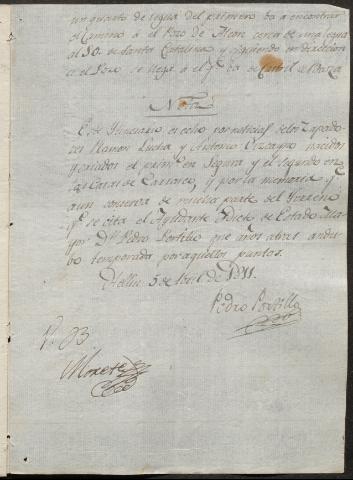 un quarto de legua del primero ba a encontrar
el Camino á el Pozo de Alcon cerca de una legua
al SO. de Santa Catalina y siguiendo en direccion
á el Pozo se llega á el qe. ba de Castril al Baza
Nota
Este Ytinerario es echo por noticias de los Zapado-
res Ramon Lucha y Antonio Vizcayno nacidos
y criados el primo. en Segura y el segundo en
las Casas de Carrasco, y por la memoria qe.
aun conserva de mucha parte del Terreno
qe. se cita el Ayudante Adicto de Estado Ma-
yor Dn. Pedro Portillo que años atras andu-
bo temporada por aquellos puntos.
Hellin 5 de Abril de 1811.
Pedro Portillo
Vo. B
Moxete